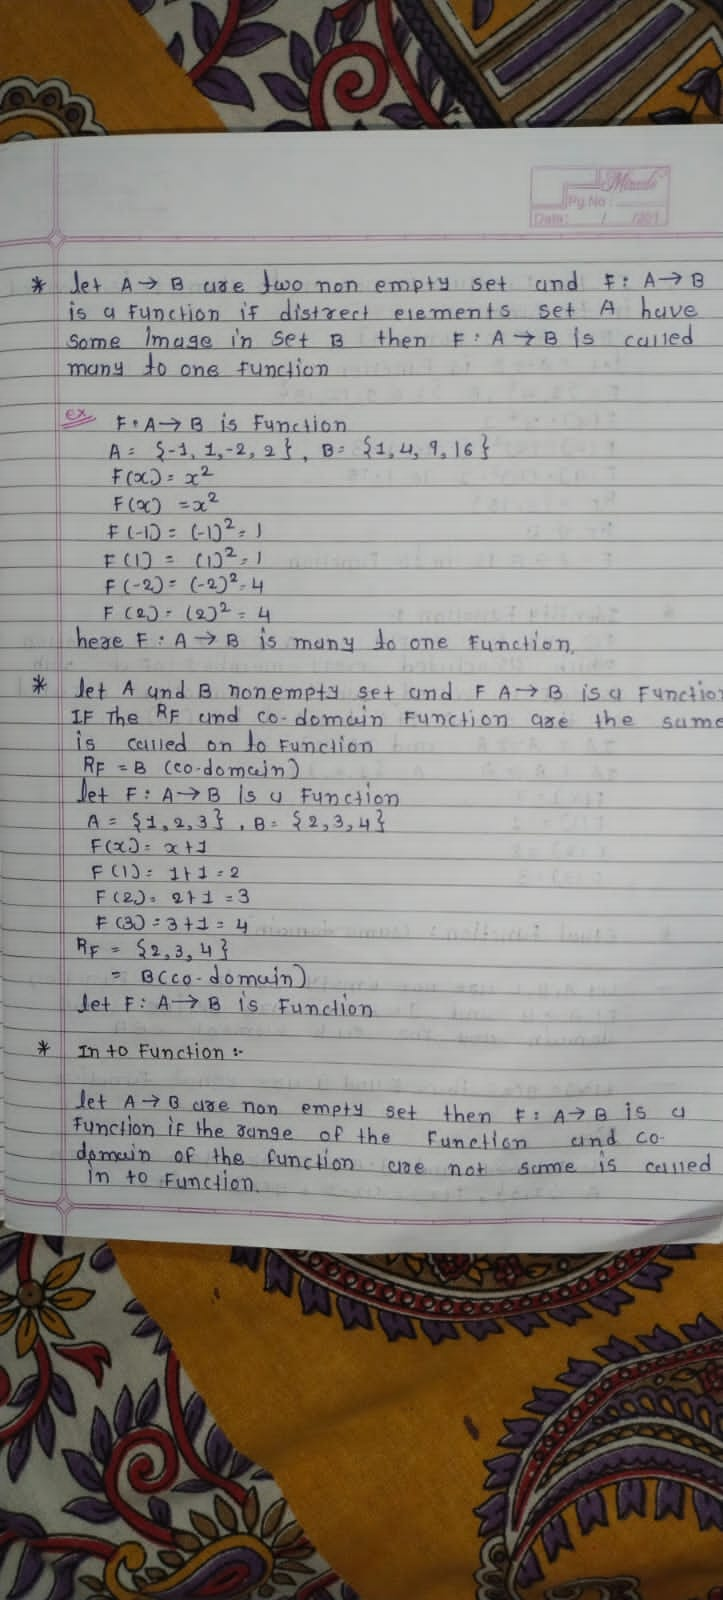 Miracle
Pg No :
Date: / /201
* let A → B are two non empty set and F : A → B
is a function if distrect elements set A have
some image in set B then F : A → B is called
many to one function
ex F : A → B is Function
A = {-1, 1, -2, 2}, B = {1, 4, 9, 16}
F(x) = x²
F(x) = x²
F(-1) = (-1)² = 1
F(1) = (1)² = 1
F(-2) = (-2)² = 4
F(2) = (2)² = 4
here F : A → B is many to one Function.
* let A and B nonempty set and F A → B is a Function
IF The RF and co-domain Function are the same
is called on to Function
RF = B (co-domain)
let F : A → B is a Function
A = {1, 2, 3}, B = {2, 3, 4}
F(x) = x+1
F(1) = 1+1 = 2
F(2) = 2+1 = 3
F(3) = 3+1 = 4
RF = {2, 3, 4}
= B(co-domain)
let F : A → B is Function
* In to Function :-
let A → B are non empty set then F : A → B is a
Function if the range of the Function and co-
domain of the function are not same is called
in to Function.